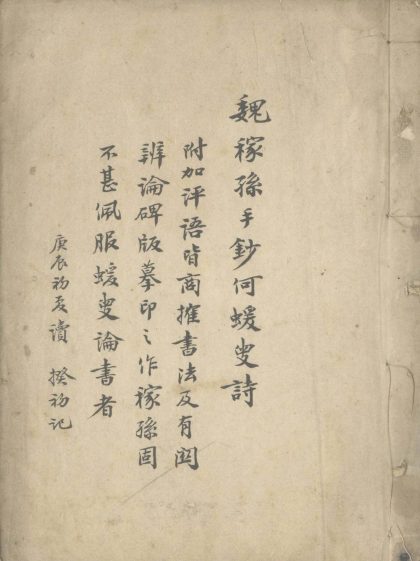 魏稼孫手鈔何蝯叟詩
附加评语皆商搉書法及有関
辨論碑版摹印之作稼孫固
不甚佩服蝯叟論書者
庚辰初夏讀 揆初记